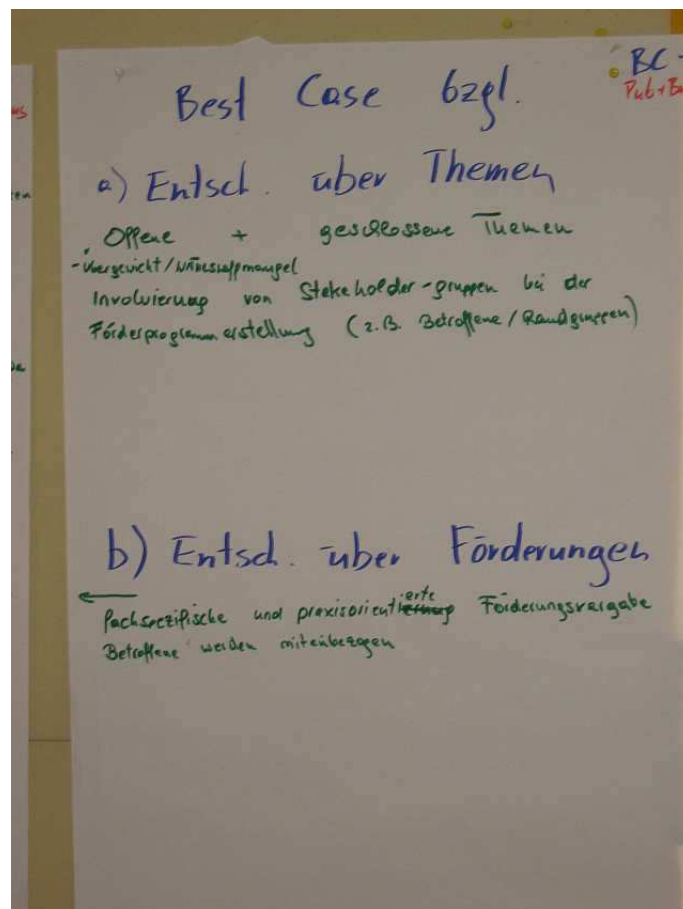 Best Case bzgl.
BC
Pub+B
a) Entsch. über Themen
Offene + geschlossene Themen
- Übergewicht/
Involvierung von Stakeholder-gruppen bei der
Förderprogrammerstellung (z.B. Betroffene/Randgruppen)
b) Entsch. über Förderungen
Fachspezifische und praxisorientierte Förderungsvergabe
Betroffene werden miteinbezogen